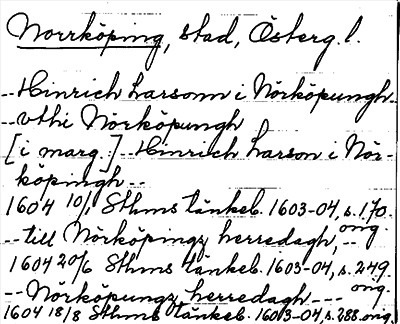 Norrköping, stad, Österg. l.
-- Hinrich Larsonn i Nörköpungh --
-- vthi Nörköpungh
[i marg.] -- Hinrich Larson i Nör-
köpingh --
1604 10/1 Sthms tänkeb. 1603-04, s. 170.
orig.
-- till Nörköpingz herredagh, --
1604 20/6 Sthms tänkeb. 1603-04, s. 249.
orig.
-- Nörköpungz herredagh ---
1604 18/8 Sthms tänkeb. 1603-04, s. 288. orig.